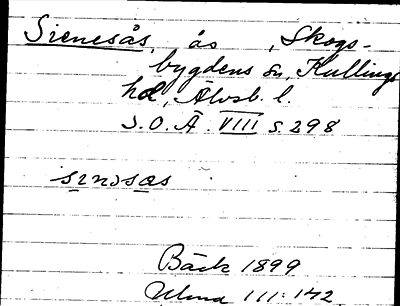 Sienesås, ås, Skogs-
bygdens sn, Kullings
hd, Älvsb. l.
S.O.Ä. VIII s. 298
Bäck 1899
111:142